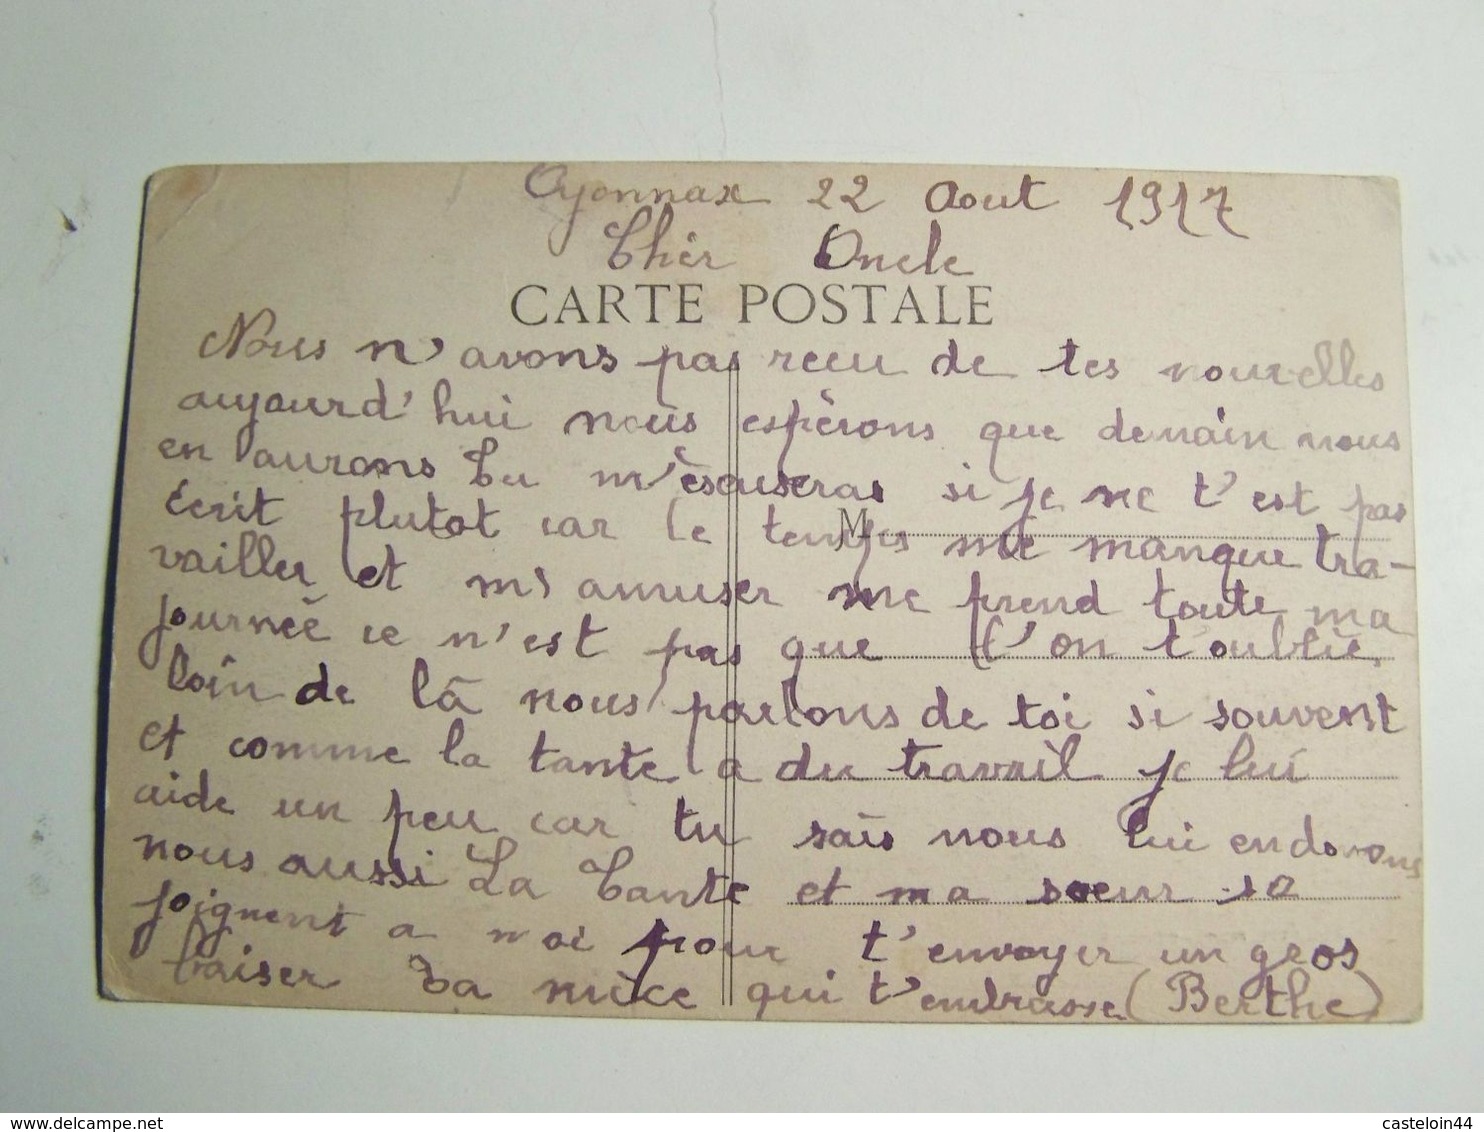 Oyonnax 22 Aout 1917
Cher Oncle
CARTE POSTALE
Nous n'avons pas recu de tes nouvelles
aujourd'hui nous espèrons que demain nous
en aurons Tu m'èscuseras si je ne t'est pas
écrit plutot car le temps me manque tra-
M
vailler et m'amuser me prend toute ma
journeé ce n'est pas que l'on t'oublie
loin de là nous parlons de toi si souvent
et comme la tante a du travail je lui
aide un peu car tu sais nous lui endonons
nous aussi La Tante et ma soeur se
joignent a moi pour t'envoyer un gros
baiser Ta nièce qui t'embrasse (Berthe)
casteloin44